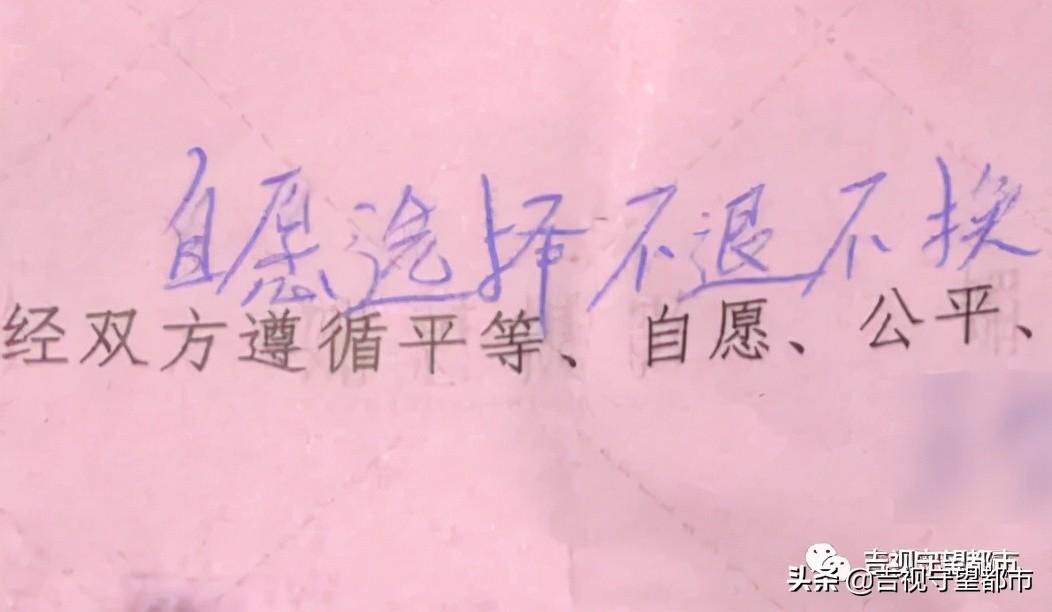 自愿选择不退不换
经双方遵循平等、自愿、公平、
吉视守望都市
头条 @吉视守望都市